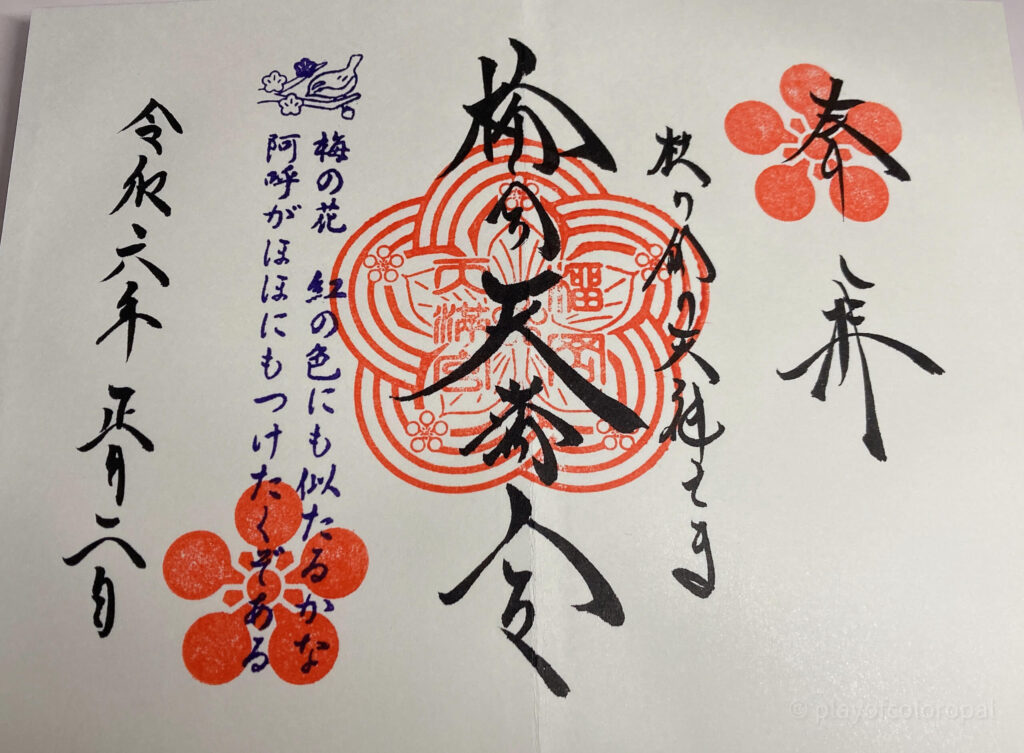 奉拝
天神さま
福岡
天満宮
梅の花 紅の色にも似たるかな
阿呼がほほにもつけたくぞある
令和六年 正月六日
© playofcoloropal